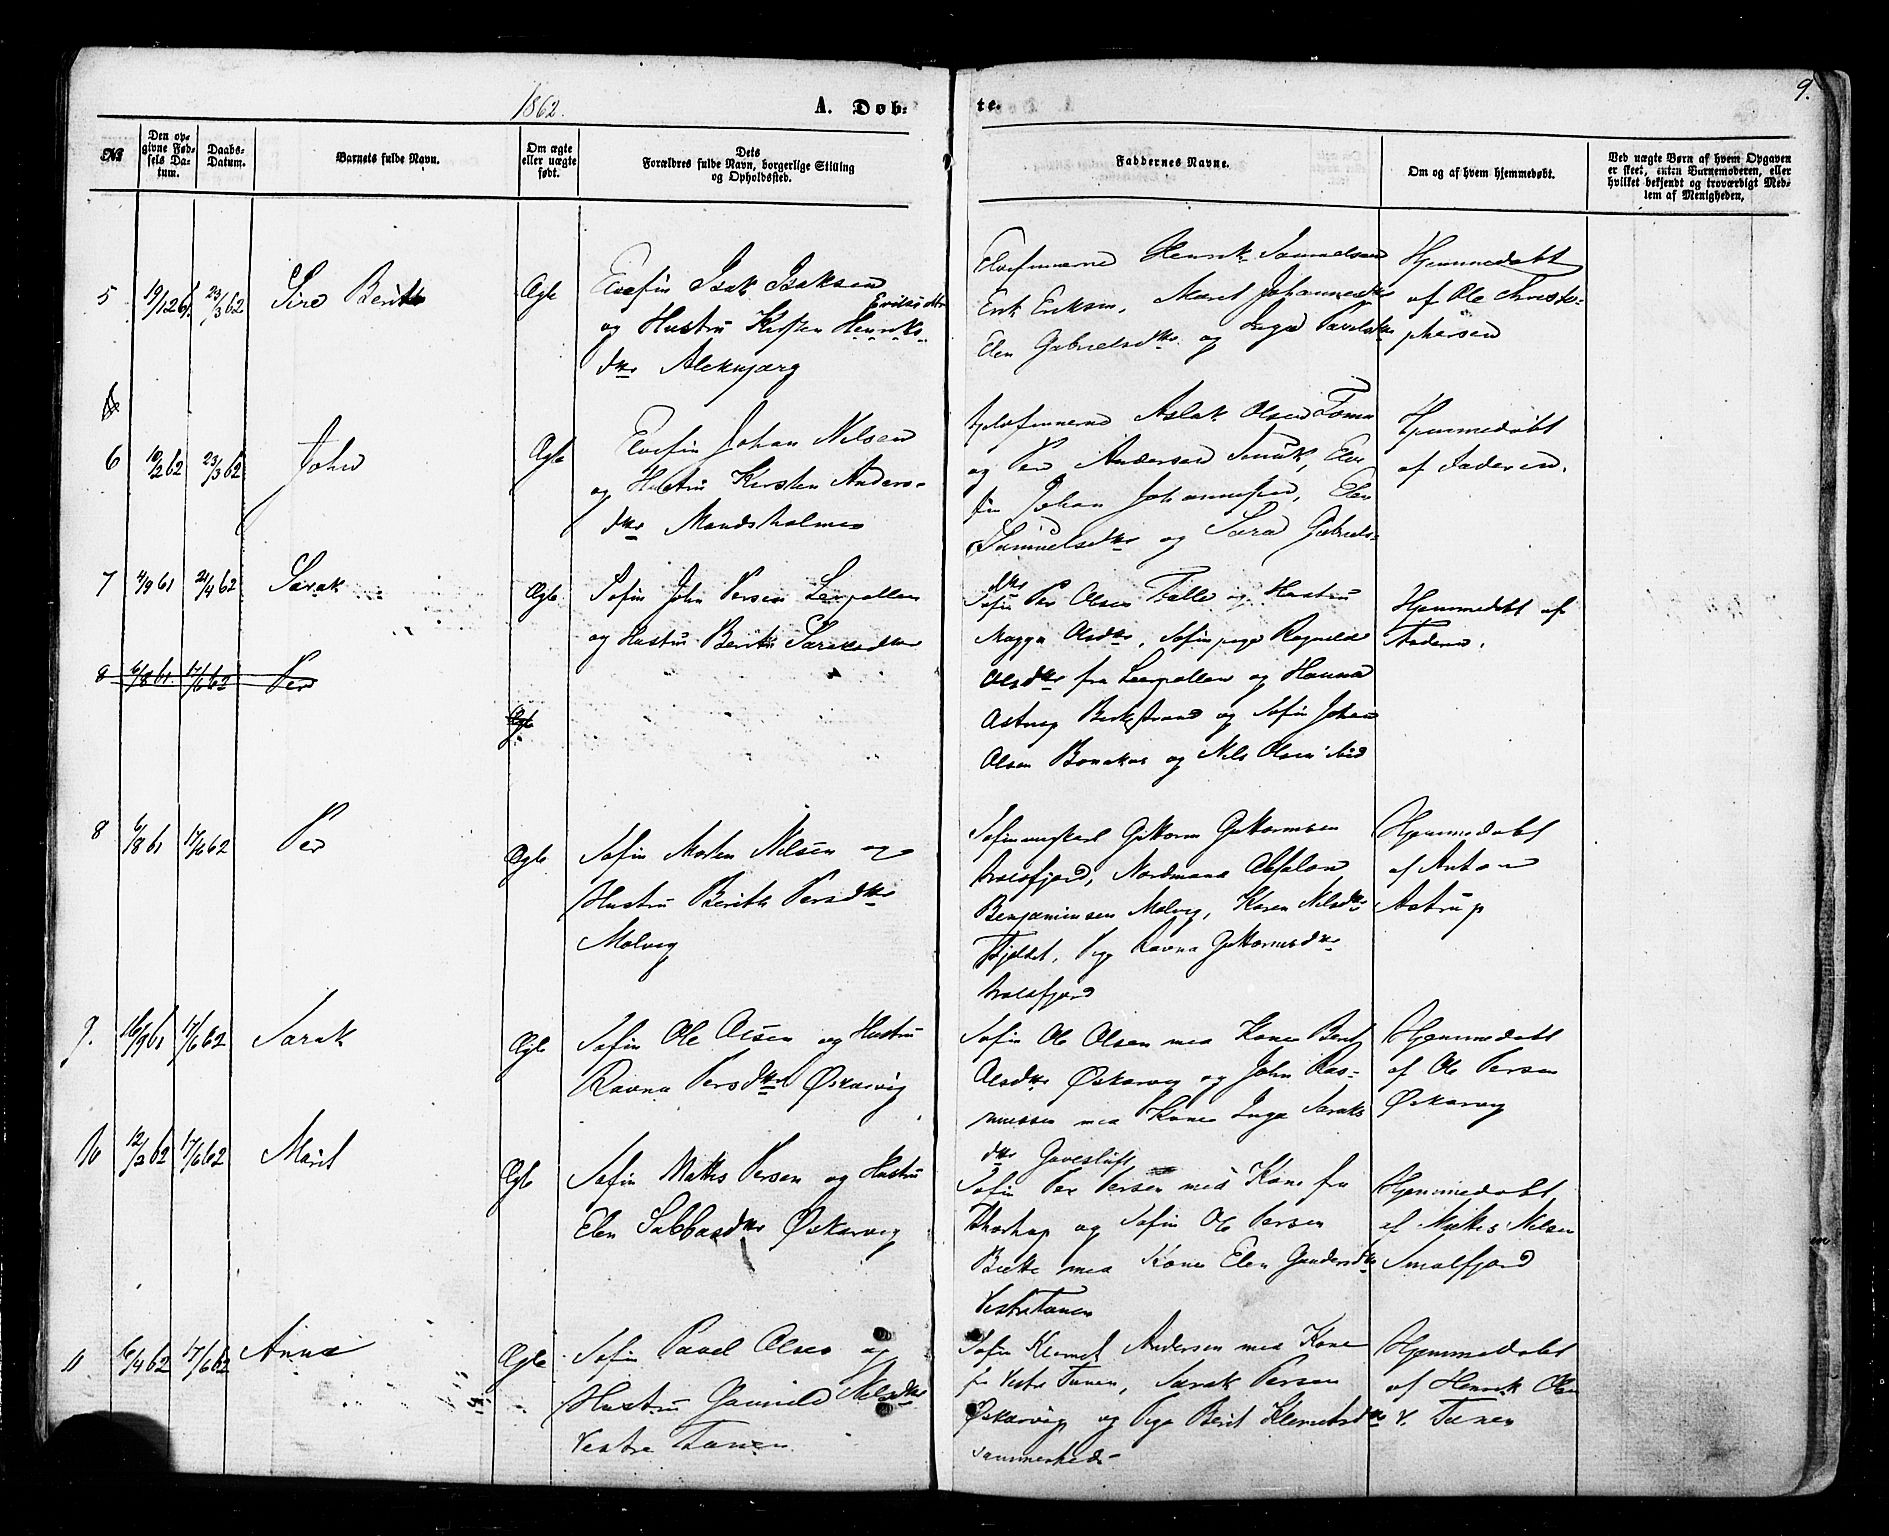 1862.
A. Døb-
te.
9.
No
Den op-
givne Fød-
sels Da-
tum.
Daabs-
Datum.
Barnets fulde Navn.
Om ægte
eller uægte
født.
Dets
Forældres fulde Navn, borgerlige Stilling
og Opholdssted.
Faddernes Navne.
Om og af hvem hjemmedøbt.
Ved uægte Børn af hvem Opgaven
er skeet, enten Barnemoderen, eller
hvilket bekjendt og troværdigt Med-
lem af Menigheden.
5 19/12 61 23/3 62 Sire Berith Ægte
Elvefin Isak Isaksen
og Hustru Kirsten Henriks-
dtr Aleknjarg
Elvefinnerne Henrik Samuelsen
Erik Eriksen, Marit Johannesdtr
Elen Gabrielsdtr og Inga Pavelsdtr
Hjemmedøbt
af Ole Christo-
phersen
6
6 10/2 62 23/3 62 John Ægte
Elvefin Johan Nilsen
og Hustru Kirsten Anders-
dtr Mandsholmen
Aslak Olsen
og Per Andersen Smuk, Elve-
fin Johan Johannesen, Elen
Samuelsdtr og Sara Gabriels-
dtr
Hjemmedøbt
af Faderen.
7 4/9 61 21/4 62 Sarak Ægte
Søfin John Persen Leerpollen
og Hustru Berith Saraksdtr
Søfin Per Olsen Fælle og Hustru
Magga Olsdtr, Søfinpige Ragnilde
Olsdtr fra Leerpollen og Hanna
Astrup Birkestrand og Søfin Johan
Olsen Bonakas og Nils Olsen ibid
Hjemmedøbt af
Faderen.
8 6/8 61 17/6 62 Per
Ægte
8 6/8 61 17/6 62 Per Ægte
Søfin Morten Nilsen og
Hustru Berith Persdtr
Molvig
Søfinungkarl Guttorm Guttormsen
Nordmand Absalon
Benjaminsen Molvig, Karen Nilsdtr
Fjeldet, Pige Ravna Guttormsdtr
Hjemmedøbt
af Anton
Astrup
9. 16/9 61 17/6 62 Sarak Ægte
Søfin Ole Olsen og Hustru
Ravna Persdtr Øskarvig
Søfin Ole Olsen med Kone Berit
Olsdtr Øskarvig og John Ras-
mussen med Kone Inga Saraks
dtr Gavesluft
Hjemmedøbt
af Ole Persen
Øskarvig
10 12/2 62 17/6 62 Marit Ægte
Søfin Mathis Persen og Hustru
Elen Sabbasdtr Øskarvig
Søfin Per Persen med Kone fra
Thorhop og Søfin Ole Persen
med Kone Elen Gundersdtr
Vestre Tanen
Hjemmedøbt
af Mathis Nilsen
Smalfjord
11 6/4 62 17/6 62 Anna Ægte
Søfin Pavel Olsen og
Hustru Gunnild Nilsdtr
Vestre Tanen
Søfin Klemet Andersen med Kone
fr Vestre Tanen, Sarak Persen
Øskarvig og Pige Berit Klemetsdtr
sammesteds
Hjemmedøbt
af Henrik Olsen
V. Tanen